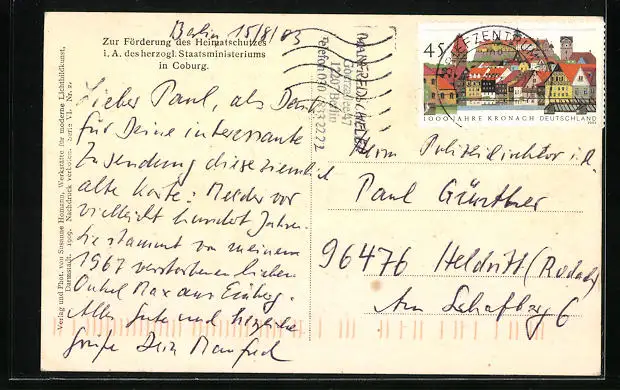 Berlin 15/8/03
Zur Förderung des Heimatschutzes
i. A. des herzogl. Staatsministeriums
in Coburg.
Lieber Paul, als Dank
für Deine interessante
Zusendung diese ziemlich
alte Karte. Melder vor
vielleicht hundert Jahren.
Sie stammt von meinem
1967 verstorbenen lieben
Onkel Max aus Einberg.
Alles Gute und herzliche
Grüße Dein Manfred
Verlag und Phot. von Susanne Homann, Werkstätte für moderne Lichtbildkunst,
Darmstadt. 1909. Nachdruck verboten. Serie VI. Nr.
MANFRED
Berlin
Telefon 030
BRIEFZENTRUM
45
1000 JAHRE KRONACH DEUTSCHLAND
Herrn Polizeidirektor i.R.
Paul Günther
96476 Heldritt (Rodach)
Am Schafberg 6